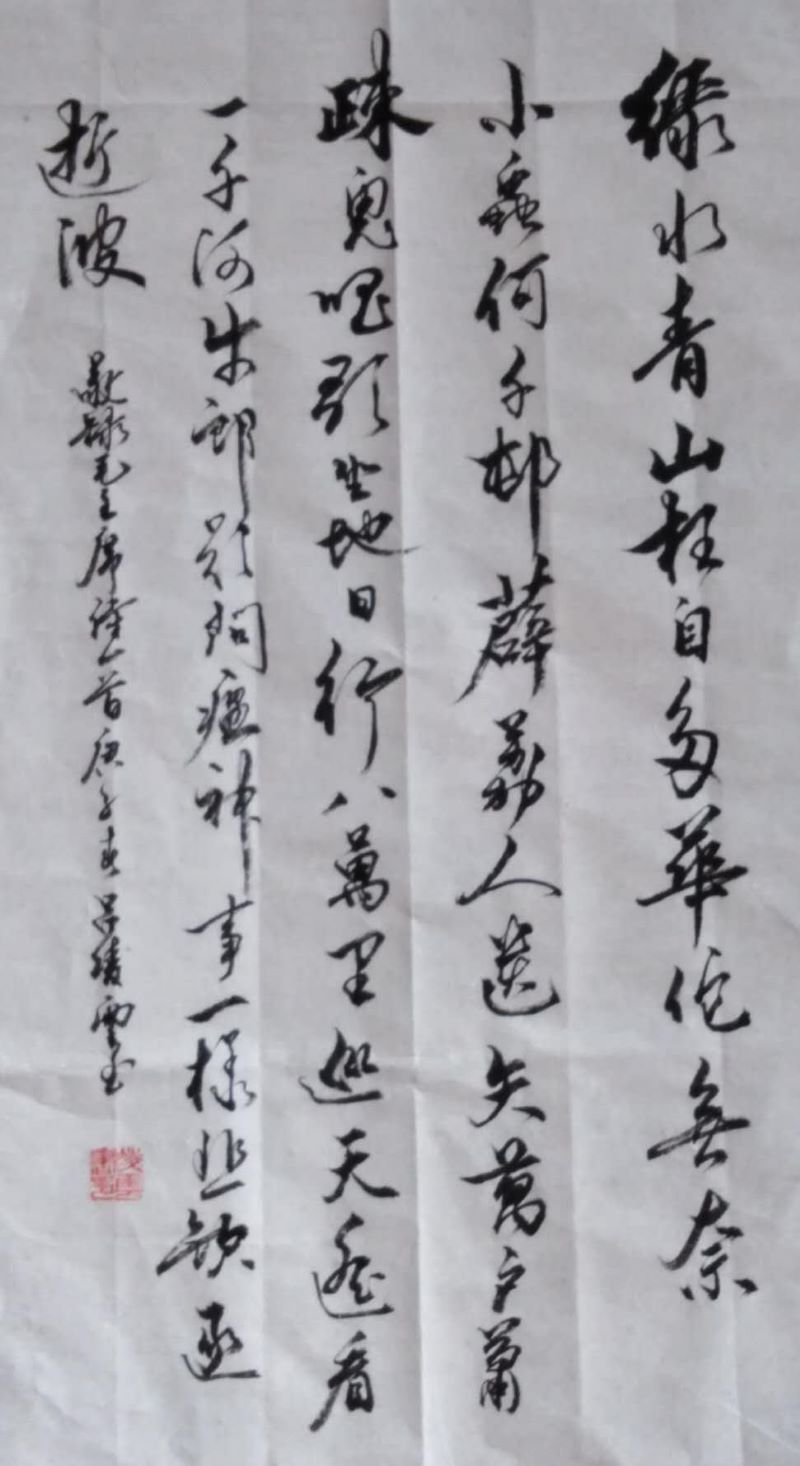 綠水青山枉自多華佗無奈
小蟲何千邨薜荔人遺矢萬户蕭
踈鬼唱歌坐地日行八萬里巡天遙看
一千河牛郎欲問瘟神事一樣悲歡逐
逝波
敬錄毛主席詩一首庚子春呂凌雲書